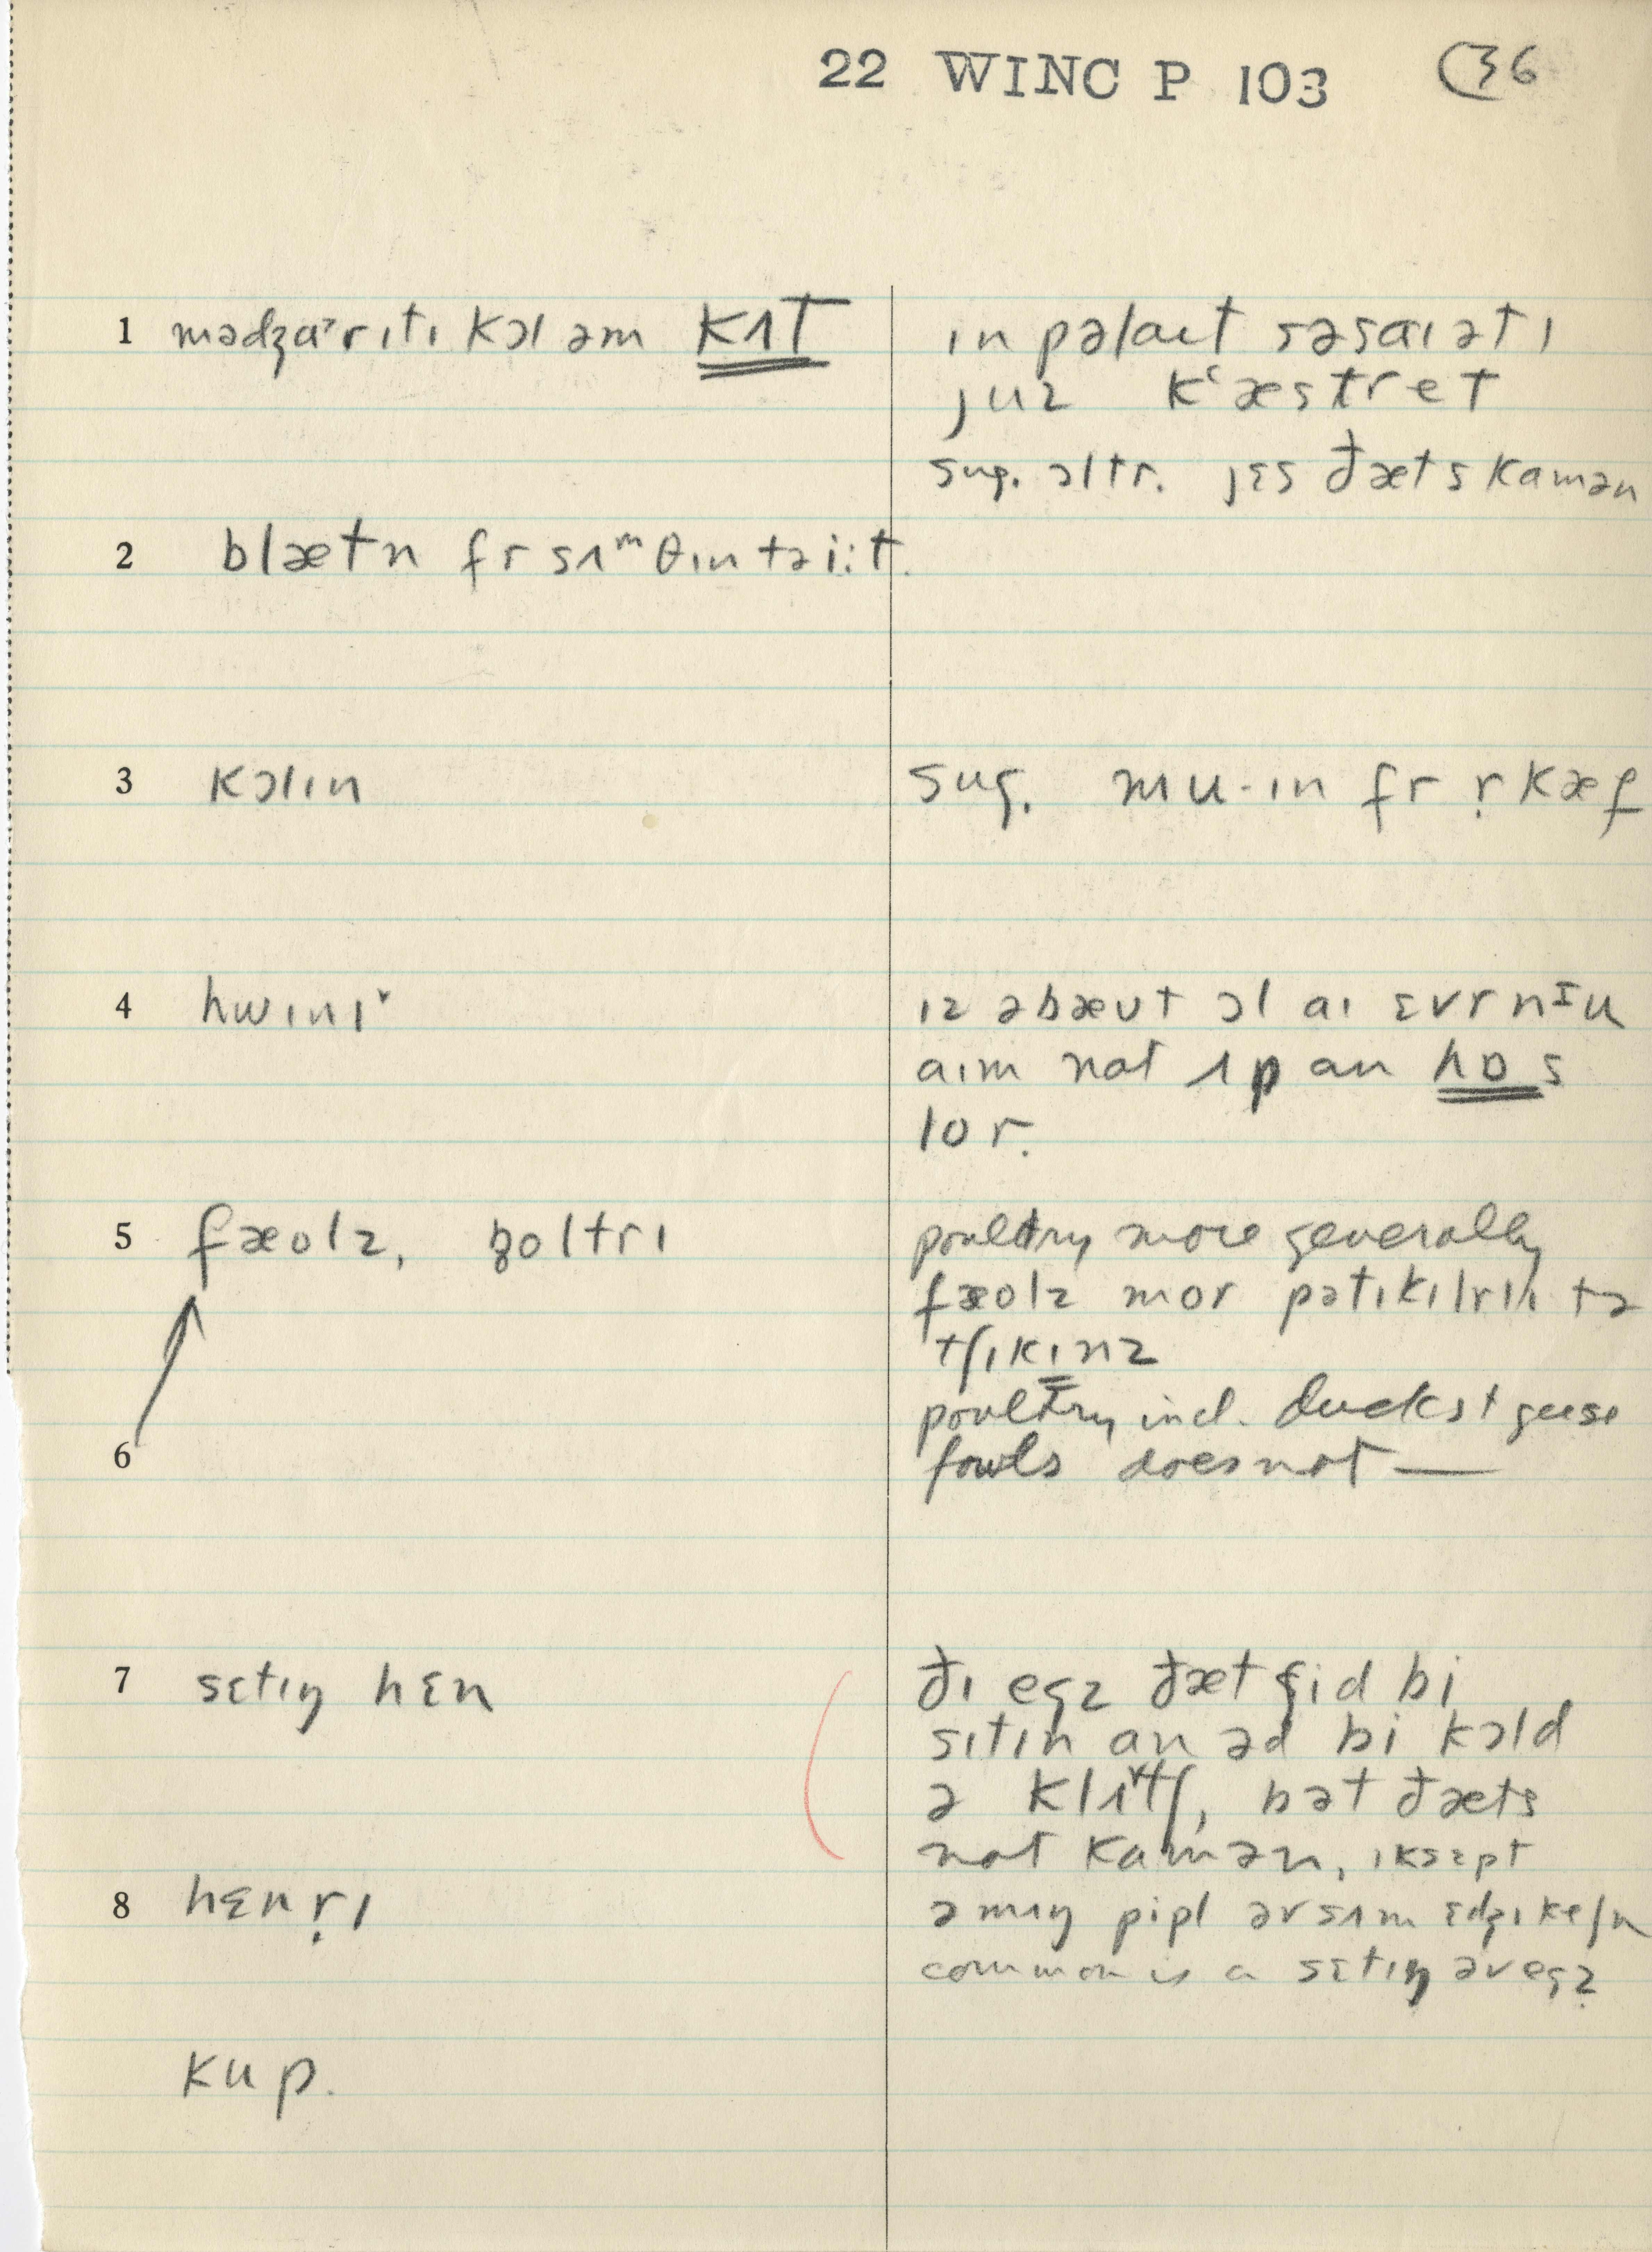 22 WINC P 103 36
1 mədʒɑ˞rɪtɪ kɔl əm kʌt
ɪn pəlaɪt səsaɪətɪ
juz kʽæstret
sug. ɔltr. jɛs ðæts kamən
2 blætn fr sʌᵐθɪn tə i:t.
3 kɔlɪn
sug. mu-ɪn fr ṛ kæf
4 hwɪnɪ˅
ɪz əbæʊt ɔl aɪ ɛvr
aɪm nat ʌp an hɒs
lor.
5 fæolz, poltrɪ
poultry more generally
fæolz mor pətɪkɪlrlɪ tə
tʃɪkɪnz
poultry incl. ducks + geese
6
fowls does not —
7 sɛtɪŋ hɛn
ðɪ egz ðæt ʃid bi
sɪtɪn an əd bi kɔld
ə klʌ˅tʃ, bət ðæts
nat kamən, ɪksɛpt
8 hɛnṛɪ
əmʌŋ pipl əv sʌm ɛdʒɪkeʃn
common is a sɛtɪŋ əv egz
kup.